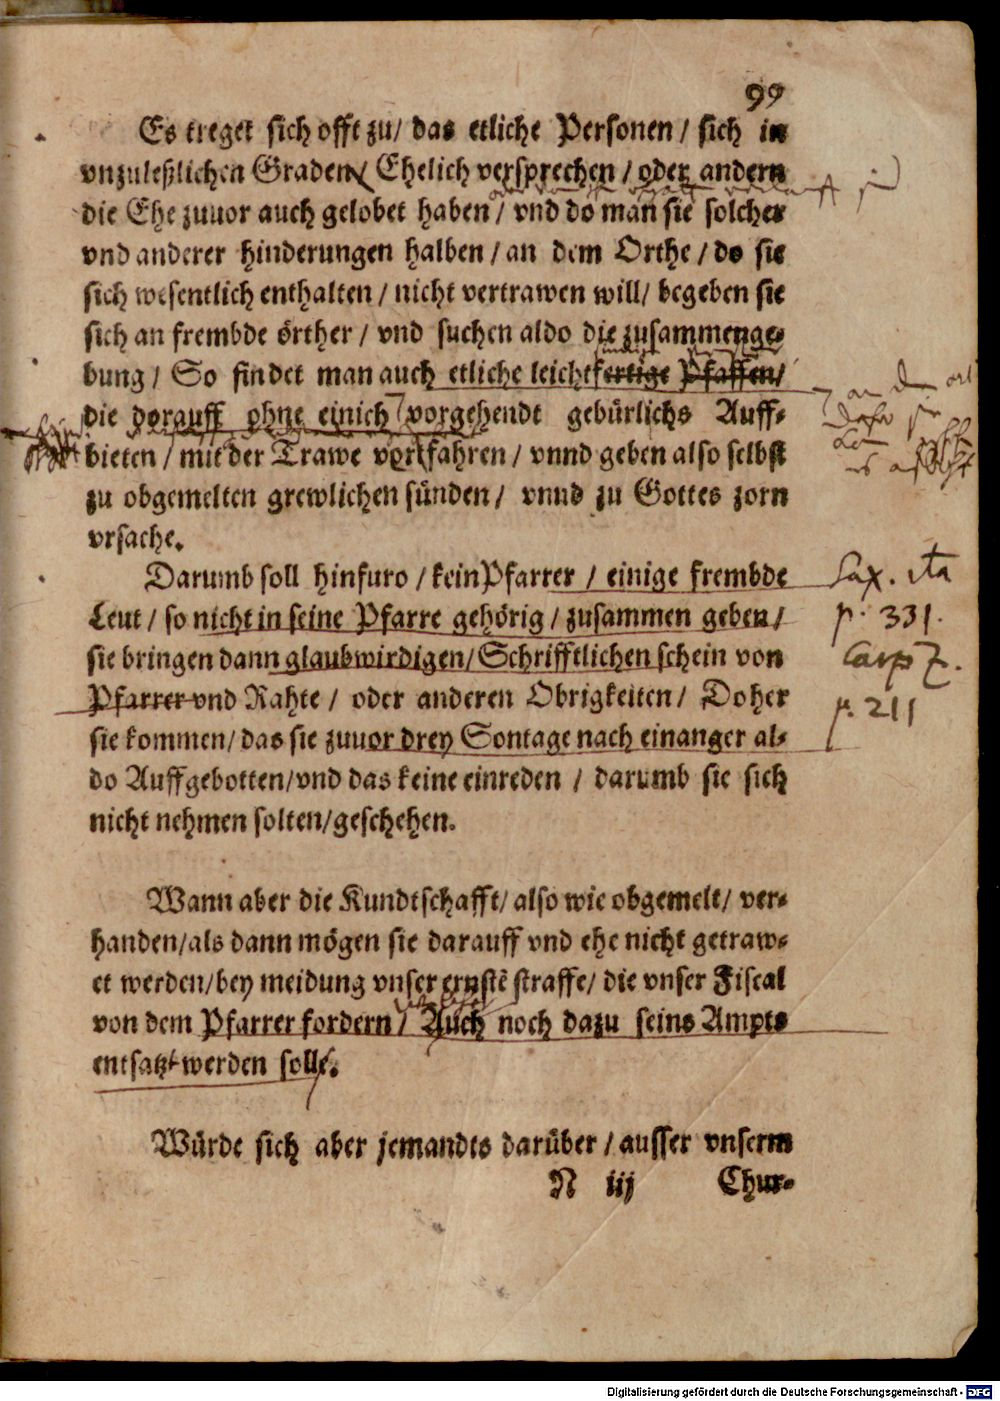 99
Es treget sich offt zu/ das etliche Personen / sich in
vnzuleßlichen Graden/ Ehelich versprechen / oder andern
die Ehe zuuor auch gelobet haben / vnd do man sie solcher
vnd anderer hinderungen halben / an dem Orthe / do sie
sich wesentlich enthalten / nicht vertrawen will/ begeben sie
sich an frembde örther / vnd suchen aldo die zusammenge-
bung / So findet man auch etliche leichtfertige Pfaffen/
die dorauff ohne einich vorgehendt gebürlichs Auff-
bieten / mit der Trawe vortfahren / vnnd geben also selbst
zu obgemelten grewlichen sünden / vnnd zu Gottes zorn
vrsache.
Darumb soll hinfuro / kein Pfarrer / einige frembde
Leut / so nicht in seine Pfarre gehörig / zusammen geben /
sie bringen dann glaubwirdigen/ Schrifftlichen schein von
Pfarrer vnd Rahte / oder anderen Obrigkeiten / Doher
sie kommen/ das sie zuuor drey Sontage nach einanger al-
do Auffgebotten/vnd das keine einreden / darumb sie sich
nicht nehmen solten/geschehen.
Sax. ita
p. 331.
Carpz.
p. 211
Wann aber die Kundtschafft/ also wie obgemelt/ ver-
handen/als dann mögen sie darauff vnd ehe nicht getraw-
et werden/bey meidung vnser ernstē straffe/ die vnser Fiscal
von dem Pfarrer fordern / Auch noch dazu seins Ampts
entsatzt werden solle.
Würde sich aber jemandts darüber / ausser vnserm
N iij Chur-
Digitalisierung gefördert durch die Deutsche Forschungsgemeinschaft - DFG